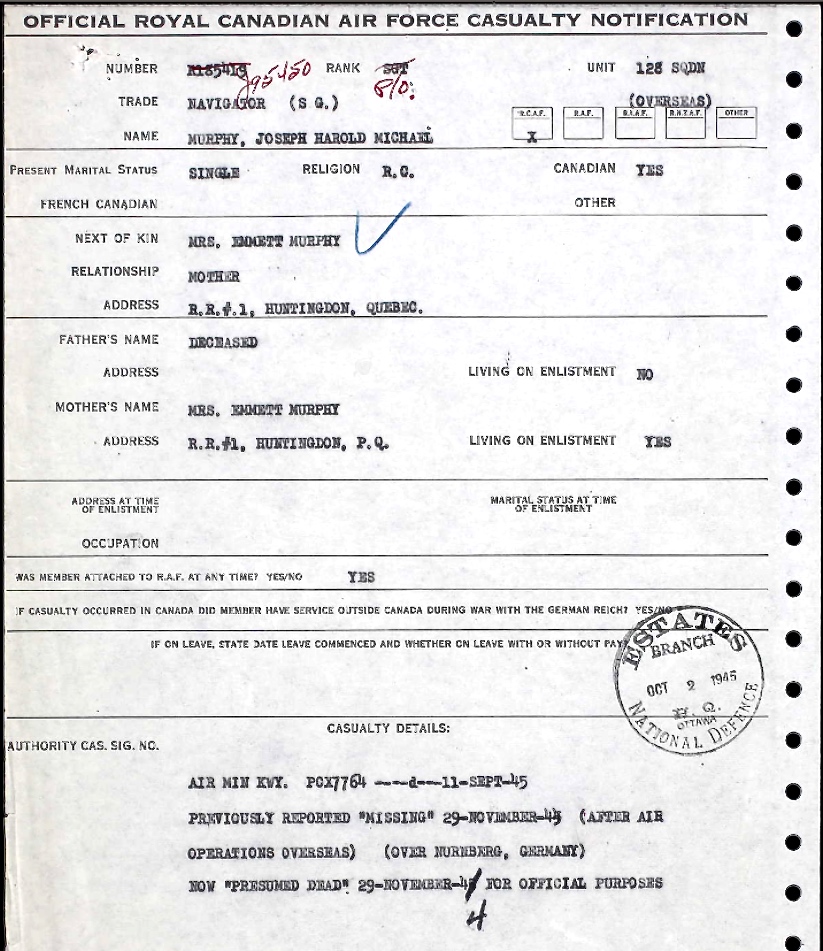 OFFICIAL ROYAL CANADIAN AIR FORCE CASUALTY NOTIFICATION
NUMBER R185419 J95450 RANK SGT P/O. UNIT 128 SQDN
TRADE NAVIGATOR (S G.) (OVERSEAS)
R.C.A.F. R.A.F. R.A.A.F. R.N.Z.A.F. OTHER
NAME MURPHY, JOSEPH HAROLD MICHAEL X
PRESENT MARITAL STATUS SINGLE RELIGION R.C. CANADIAN YES
FRENCH CANADIAN OTHER
NEXT OF KIN MRS. EMMETT MURPHY
RELATIONSHIP MOTHER
ADDRESS R.R.#.1, HUNTINGDON, QUEBEC.
FATHER'S NAME DECEASED
ADDRESS LIVING ON ENLISTMENT NO
MOTHER'S NAME MRS. EMMETT MURPHY
ADDRESS R.R.#1, HUNTINGDON, P.Q. LIVING ON ENLISTMENT YES
ADDRESS AT TIME OF ENLISTMENT MARITAL STATUS AT TIME OF ENLISTMENT
OCCUPATION
WAS MEMBER ATTACHED TO R.A.F. AT ANY TIME? YES/NO YES
IF CASUALTY OCCURRED IN CANADA DID MEMBER HAVE SERVICE OUTSIDE CANADA DURING WAR WITH THE GERMAN REICH? YES/NO
IF ON LEAVE, STATE DATE LEAVE COMMENCED AND WHETHER ON LEAVE WITH OR WITHOUT PAY
ESTATES
BRANCH
OCT 2 1945
H. Q.
OTTAWA
NATIONAL DEFENCE
CASUALTY DETAILS:
AUTHORITY CAS. SIG. NO.
AIR MIN KWY. PCX7764 ----d---11-SEPT-45
PREVIOUSLY REPORTED "MISSING" 29-NOVEMBER-44 (AFTER AIR
OPERATIONS OVERSEAS) (OVER NURNBERG, GERMANY)
NOW "PRESUMED DEAD" 29-NOVEMBER-4 FOR OFFICIAL PURPOSES
4